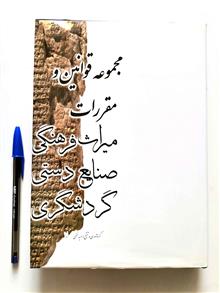 مجموعه قوانین و
مقررات
میراث فرهنگی
صنایع دستی
گردشگری